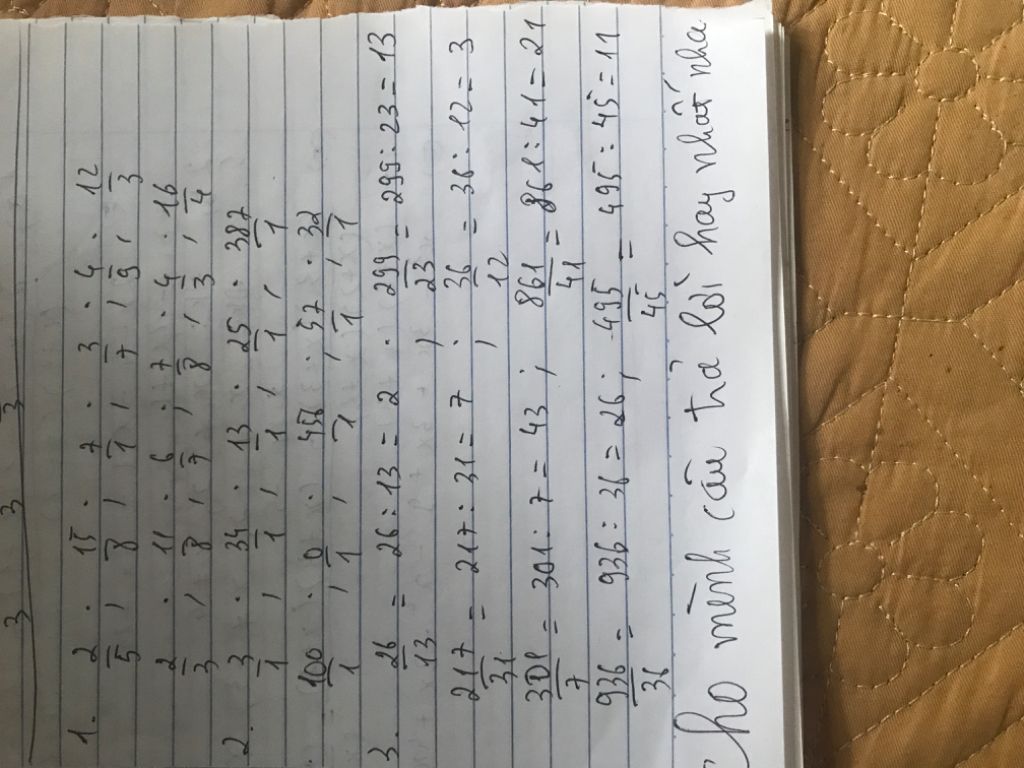 3 3 3
1. 2/5 ; 15/8 ; 7/1 ; 3/7 ; 4/9 ; 12/3
2/3 ; 11/8 ; 6/7 ; 7/8 ; 4/3 ; 16/4
2. 3/1 ; 34/1 ; 13/1 ; 25/1 ; 387/1
100/1 ; 0/1 ; 458/1 ; 57/1 ; 32/1
3. 26/13 = 26 : 13 = 2 ; 299/23 = 299 : 23 = 13
217/31 = 217 : 31 = 7 ; 36/12 = 36 : 12 = 3
301/7 = 301 : 7 = 43 ; 861/41 = 861 : 41 = 21
936/36 = 936 : 36 = 26 ; 495/45 = 495 : 45 = 11
Cho mình câu trả lời hay nhất nha